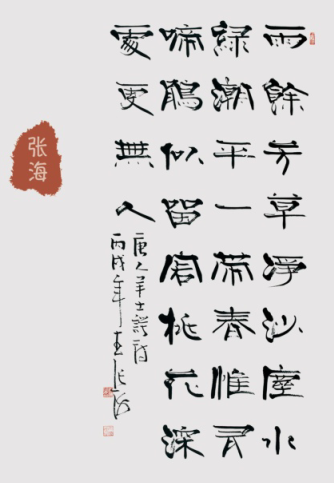 雨餘芳草淨沙塵水
綠潮平一帶春惟有
啼鵑似留客桃花深
處更無人
唐人羊士諤詩
丙戌年書張海
张海